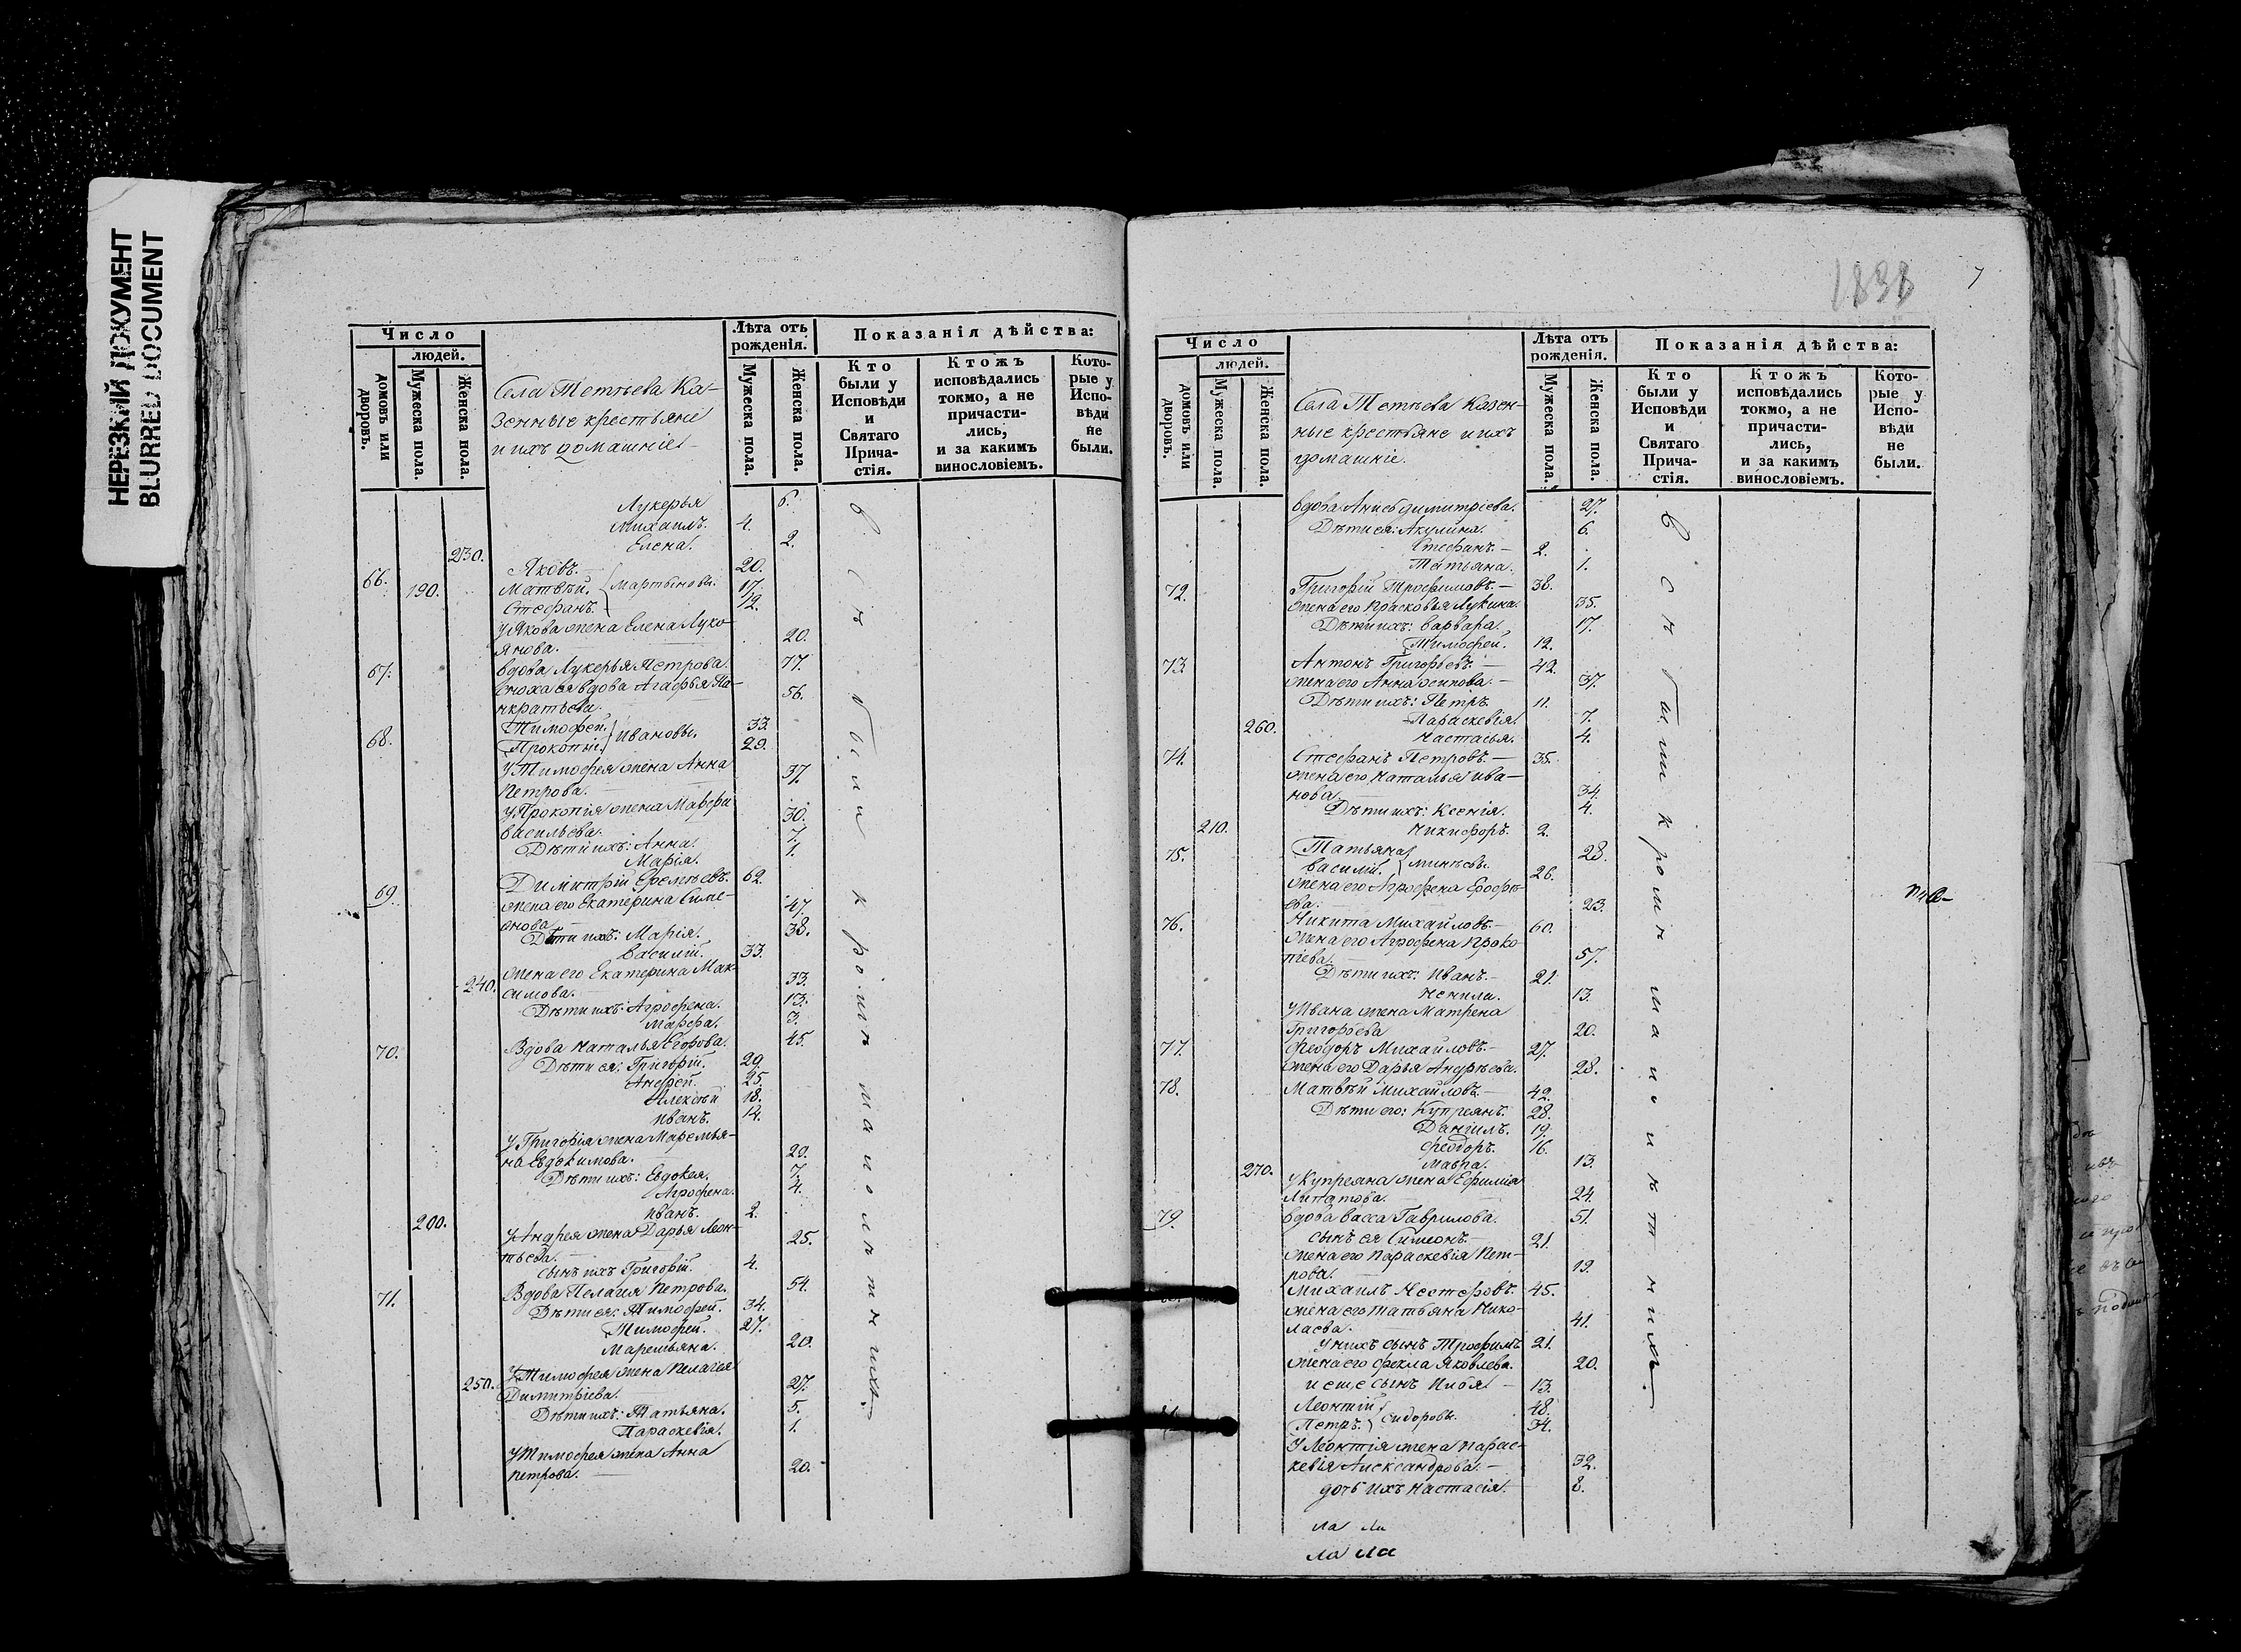 НЕРЕЗКИЙ ДОКУМЕНТ
BLURRED DOCUMENT
Число
людей.
домовъ или дворовъ.
Мужеска пола.
Женска пола.
Села Тетѣева Ка-
зенные крестьяне
и ихъ домашніе
Лѣта отъ рожденія.
Мужеска пола.
Женска пола.
Показанія дѣйства:
Кто были у Исповѣди и Святаго Прича-стія.
Ктожъ исповѣдались токмо, а не причасти-лись, и за какимъ винословіемъ.
Кото-рые у Испо-вѣди не были.
Лукерья 6.
Михаилъ. 4.
230. Елена. 2.
66. Яковъ. 20.
190. Матвѣй. Мартыновы. 17.
Стефанъ. 12.
У Якова жена Елена Луко-
янова. 20.
67. Вдова Лукерья Петрова. 77.
сноха ея вдова Агафья Па-
нкратьева. 56.
68. Тимофей. Ивановы. 33.
Прокопій. 29.
У Тимофея жена Анна
Петрова. 37.
У Прокопія жена Марфа
Васильева. 30.
Дѣти ихъ: Анна. 7.
Марія. 1.
69. Димитрій Еремѣевъ. 62.
жена его Екатерина Симе-
онова 47.
Дѣти ихъ: Марія. 38.
Василій. 33.
жена его Екатерина Мак-
240. симова. 33.
Дѣти ихъ: Агрофена. 13.
Марфа. 3.
70. Вдова Наталья Егорова. 45.
Дѣти ея: Григорій. 29.
Андрей. 25.
Алексѣй 18.
Иванъ. 14.
У Григорія жена Маремья-
на Евдокимова. 29.
Дѣти ихъ: Евдокея. 7.
Агрофена. 4.
200. Иванъ. 2.
У Андрея жена Дарья Леон-
тьева. 25.
сынъ ихъ Григорій. 4.
71. Вдова Пелагия Петрова. 54.
Дѣти ея: Тимофей. 34.
Тимофей. 27.
Маремьяна. 20.
У Тимофея жена Пелагея
250. Димитріева. 27.
Дѣти ихъ: Татьяна. 5.
Параскевія. 1.
У Тимофея жена Анна
Петрова. 20.
всѣ были кромѣ малолѣтнихъ
1838
7
Число
людей.
домовъ или дворовъ.
Мужеска пола.
Женска пола.
Села Тетѣева Казен-
ные крестьяне и ихъ
домашніе.
Лѣта отъ рожденія.
Мужеска пола.
Женска пола.
Показанія дѣйства:
Кто были у Исповѣди и Святаго Прича-стія.
Ктожъ исповѣдались токмо, а не причасти-лись, и за какимъ винословіемъ.
Кото-рые у Испо-вѣди не были.
Вдова Анна Димитріева. 27.
Дѣти ея: Акулина. 6.
Стефанъ. 2.
Татьяна. 1.
72. Григорій Трофимовъ. 38.
Жена его Прасковья Лукина. 35.
Дѣти ихъ: Варвара. 17.
Тимофей. 12.
73. Антонъ Григорьевъ. 42.
жена его Анна Осипова. 37.
Дѣти ихъ: Петръ 11.
Параскевія. 7.
260. Настасья. 4.
74. Стефанъ Петровъ. 35.
жена его Наталья Ива-
нова. 34.
Дѣти ихъ: Ксенія. 4.
210. Никифоръ. 2.
75. Татьяна 28.
Василій. 26.
жена его Агрофена Ерофѣ-
ева. 23.
76. Никита Михайловъ. 60.
Жена его Агрофена Проко-
піева. 57.
Дѣти ихъ: Иванъ. 21.
Ненила. 13.
У Ивана жена Матрена
Григорьева 20.
77. Феодоръ Михайловъ. 27.
жена его Дарья Андрѣева. 28.
78. Матвѣй Михайловъ. 42.
Дѣти его: Купреянъ. 28.
Даніилъ. 19.
Феодоръ. 16.
270. Мавра. 13.
У Купреяна жена Ефимія
Липатова. 24.
79. Вдова Васса Гаврилова. 51.
сынъ ея Симеонъ. 21.
жена его Параскевія Пет-
рова. 19.
Михаилъ Нестеровъ. 45.
жена его Татьяна Нико-
лаева. 41.
У нихъ сынъ Трофимъ 21.
жена его Фекла Яковлева. 20.
и еще сынъ Илья 13.
Леонтій 48.
Петръ. Сидоровы. 34.
У Леонтія жена Парас-
кевія Александрова. 32.
дочь ихъ Настасія. 8.
ла ла
ла ла
всѣ были кромѣ малолѣтнихъ